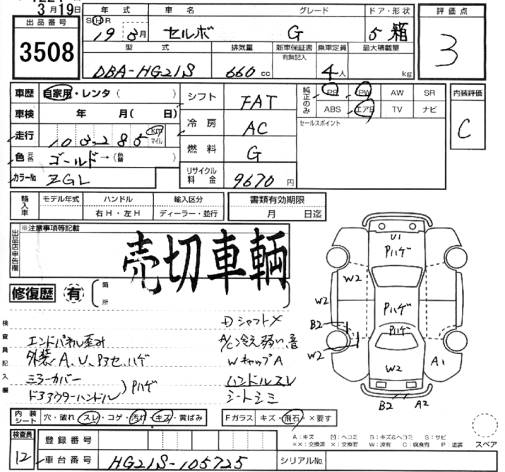 3月19日
出品番号 3508
年式 グレード ドア・形状 評価点
19 3月 セルボ G 5 箱 3
型式 排気量 新車保証書 有無記入 乗車定員 最大積載量
DBA-HG21S 660cc 4人 kg
車歴 自家用・レンタ ( ) シフト FAT
純正のみ PS PW AW SR
ABS エアB TV ナビ
内装評価 C
車検 年 月( 日) 冷房 AC
セールスポイント
走行 103,285 km マイル
燃料 G
色 ゴールド→(
カラーNo ZGL
リサイクル料金 9670円
輸入車 モデル年式 ハンドル 右H・左H 輸入区分 ディーラー・並行
書類有効期限 月 日迄
出品店申告欄 ※注意事項等記載
売切車輌
修復歴 有 箇所
検査員記入欄
エンドパネル歪み
外装A、U、Pヨセ、ハゲ
ミラーカバー
ドアアウターハンドル )Pハゲ
Dシャフト×
A/C冷え弱い
WキャップA
ハンドルスレ
シートシミ
U1
Pハゲ
W2
Pハゲ
W2
B2
W2
B2
W2
W2
A1
B2 A2
内装シート 穴・破れ・スレ・コゲ・汚れ・キズ・黄ばみ
Fガラス キズ・飛石・×要す
スペア
検査員 12
登録番号
車台番号 HG21S-105725
シリアルNo